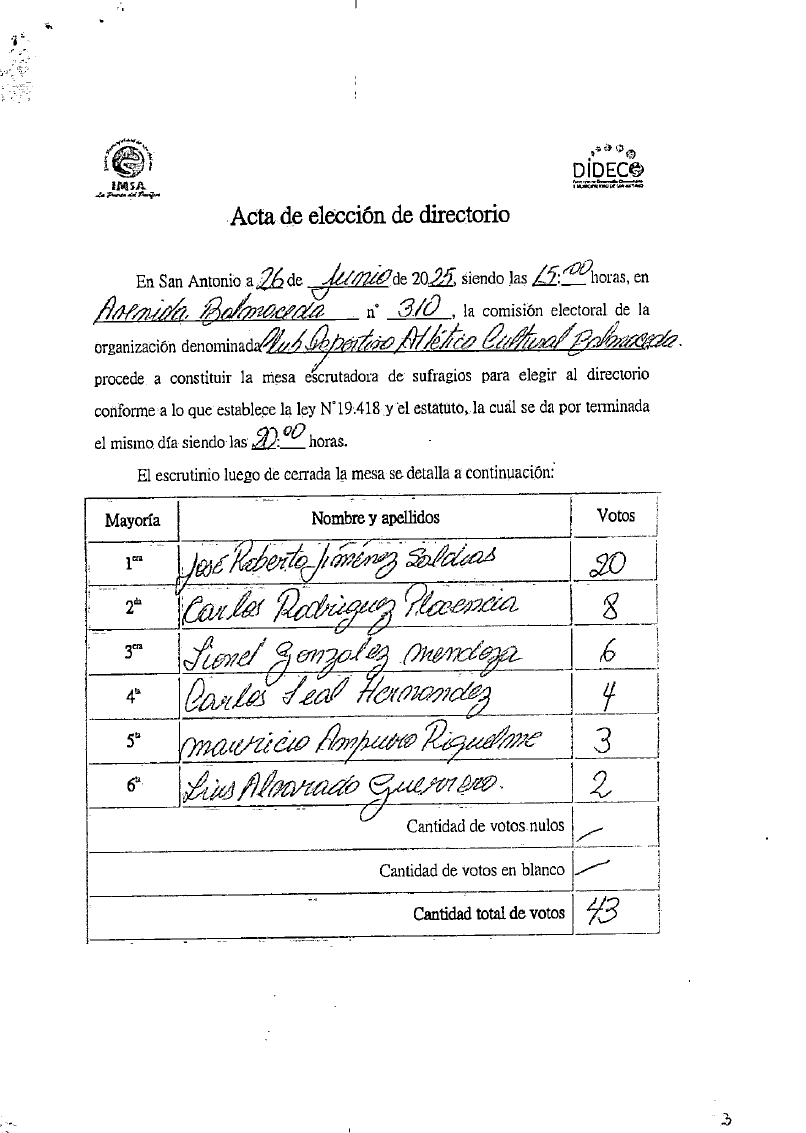 IMSA
La Puerta del Pacífico
DIDECO
Acta de elección de directorio
En San Antonio a 26 de Junio de 2025, siendo las 15:00 horas, en
Avenida Balmaceda n° 310, la comisión electoral de la
organización denominada Club Deportivo Atlético Cultural Balmaceda.
procede a constituir la mesa escrutadora de sufragios para elegir al directorio
conforme a lo que establece la ley N°19.418 y el estatuto, la cual se da por terminada
el mismo día siendo las 20:00 horas.
El escrutinio luego de cerrada la mesa se detalla a continuación:
Mayoría Nombre y apellidos Votos
1era José Roberto Jiménez Saldias 20
2da Carlos Rodriguez Placencia 8
3era Lionel Gonzalez Mendoza 6
4ta Carlos Leal Hernandez 4
5ta Mauricio Ampuero Riquelme 3
6ta Luis Alvarado Guerrero. 2
Cantidad de votos nulos —
Cantidad de votos en blanco —
Cantidad total de votos 43
3